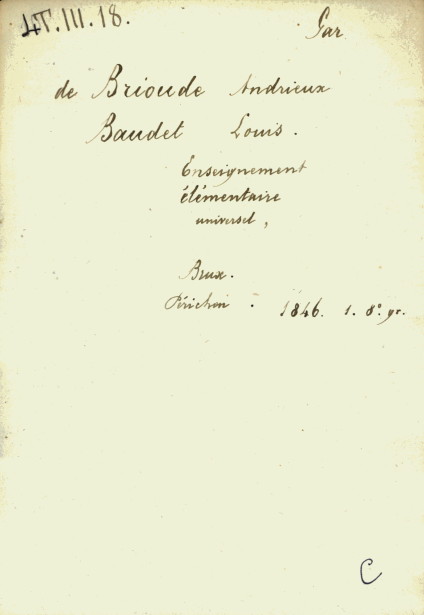 LT.III.18.
Par
de Brioude Andrieux
Baudet Louis.
Enseignement
élémentaire
universel,
Brux.
Périchon. 1846. 1. 8º. gr.
C